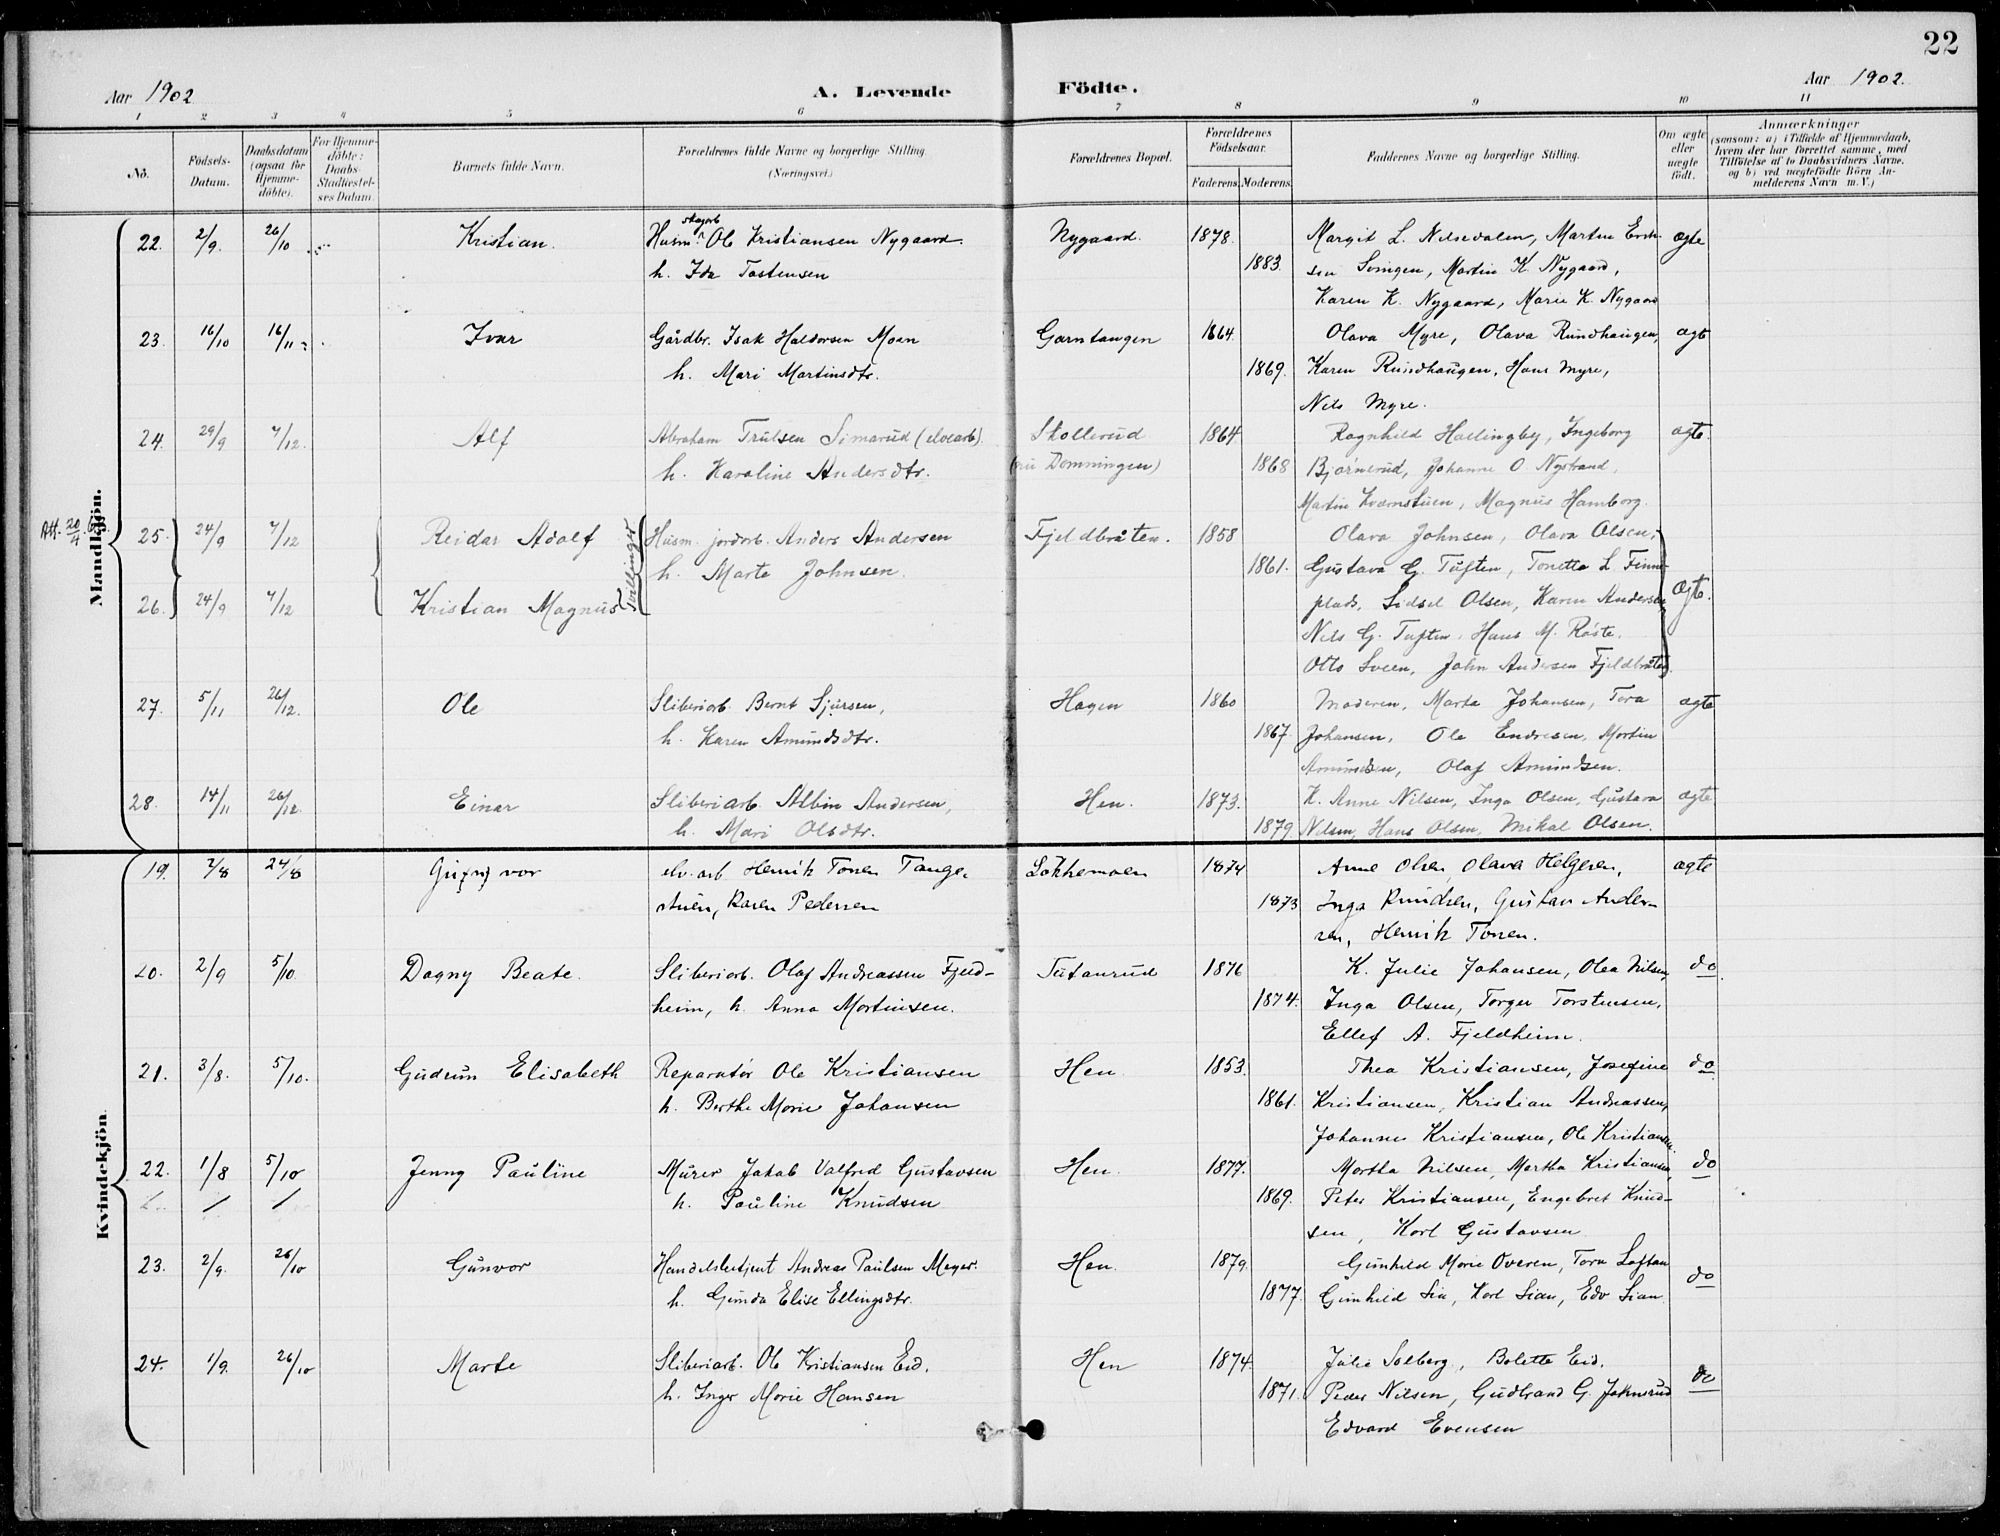 22
Aar 1902
A. Levende Födte.
Aar 1902.
1 2 3 4 5 6 7 8 9 10 11
No.
Födsels-Datum.
Daabsdatum (ogsaa for Hjemme-döbte).
For Hjemme-döbte: Daabs-Stadfæstel-ses Datum.
Barnets fulde Navn.
Forældrenes fulde Navne og borgerlige Stilling. (Næringsvei.)
Forældrenes Bopæl.
Forældrenes Födselsaar.
Faderens. Moderens.
Faddernes Navne og borgerlige Stilling.
Om ægte eller uægte födt.
Anmærkninger
(saasom: a) i Tilfælde af Hjemmedaab,
hvem der har forrettet samme, med
Tilföielse af to Daabsvidners Navne.
og b) ved uægtefödte Börn An-
melderens Navn m. V.)
Mandkjön.
skogarb
22. 2/9 26/10 Kristian. Husm. Ole Kristiansen Nygaard. Nygaard. 1878. Margit L. Nilsedalen, Martin Erik- ægte
h. Ida Tostensen 1883. sen Svingen, Martin K. Nygaard,
Karen K. Nygaard, Marie K. Nygaard
23. 16/10 16/11 Ivar Gårdbr. Isak Haldorsen Moen Garntangen 1864. Olava Myre, Olava Rundhaugen, ægte
h. Mari Martinsdtr. 1869. Karen Rundhaugen, Hans Myre,
Nils Myre.
24. 29/9 7/12 Alf Abraham Trulsen Simarud (elvearb) Skollerud 1864 Ragnhild Hallingby, Ingeborg ægte.
h. Karoline Andersdtr. Domningen) 1868 Bjørnerud, Johanne O. Nystrand,
Martin Kværnstuen, Magnus Hamborg.
25. 24/9 7/12 Reidar Adolf Husm. jordarb. Anders Andersen Fjeldbråten. 1858 Olava Johnsen, Olava Olsen,
Tvillinger
h. Marte Johnsen. 1861. Gustava G. Tuften, Tonetta L. Finne-
26. 24/9 7/12 Kristian Magnus plads, Sidsel Olsen, Karen Andersen ægte.
Nils G. Tuften, Hans M. Røste,
Otto Sveen, John Andersen Fjeldbråten.
27. 5/11 26/12. Ole Sliberiarb. Bernt Sjursen, Hagen 1860 Moderen, Marta Johansen, Tora ægte
h. Karen Amundsdtr. 1867. Johansen, Ole Endresen, Martin
Amundsen, Olaf Amundsen.
28. 14/11 26/12. Einar Sliberiarb. Albin Andersen, Hen. 1873. K. Anne Nilsen, Inga Olsen, Gustava ægte
h. Mari Olsdtr. 1879 Nilsen, Hans Olsen, Mikal Olsen.
Kvindekjön.
19. 7/8 24/8 Gunvor elv. arb Henrik Tonen Tange- Lokkemoen 1874 Anne Olsen, Olava Helgesen, ægte
stuen, Karen Pedersen 1873 Inga Knudsen, Gustav Ander-
sen, Henrik Tonen.
20. 2/9 5/10. Dagny Beate. Sliberiarb. Olaf Andreassen Fjeld- Tutanrud 1876 K. Julie Johansen, Olea Nilsen, do.
heim, h. Anna Mortinsen. 1874. Inga Olsen, Torger Torstensen,
Ellef A. Fjeldheim.
21. 3/8. 5/10. Gudrun Elisabeth Reparatør Ole Kristiansen Hen. 1853. Thea Kristiansen, Josefine do.
h. Berthe Marie Johansen 1861. Kristiansen, Kristian Andreassen,
Johannes Kristiansen, Ole Kristiansen.
22. 1/8 5/10 Jenny Pauline Murer Jakob Valfred Gustavsen Hen. 1877. Martha Nilsen, Martha Kristiansen, do
h. Pauline Knudsen 1869. Peter Kristiansen, Engebret Knud-
sen, Karl Gustavsen
23. 2/9. 26/10 Gunvor Handelsbetjent Andreas Paulsen Meyer. Hen. 1879. Gunhild Marie Overen, Tora Loftan
h. Gunda Elise Ellingsdtr. 1877. Gunhild Lia, Karl Lian, Edv Lian. do
24. 1/9. 26/10 Marte Sliberiarb. Ole Kristiansen Eid. Hen 1874. Julie Solberg, Bolette Eid.
h. Inger Marie Hansen 1871. Peder Nilsen, Gudbrand G. Johnsrud do
Edvard Evensen